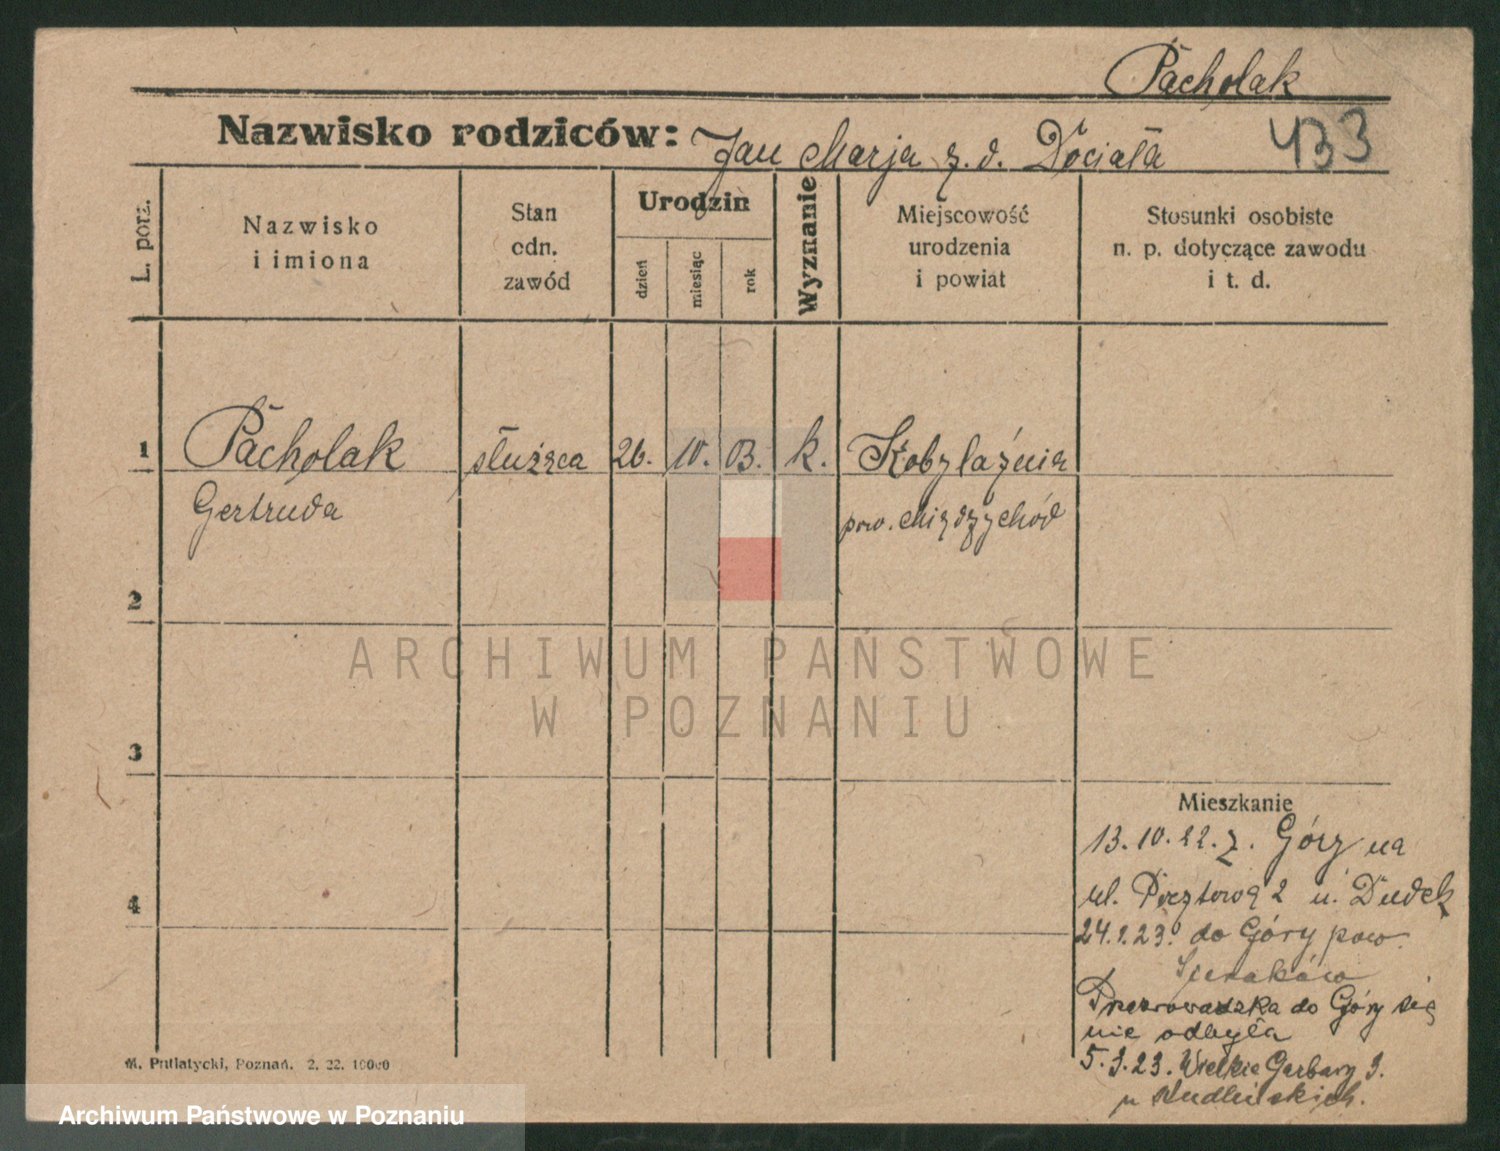 Pacholak
Nazwisko rodziców: Jan Marja z. d. Dociała
433
L. porz.
Nazwisko i imiona
Stan odn. zawód
Urodzin
dzień
miesiąc
rok
Wyznanie
Miejscowość urodzenia i powiat
Stosunki osobiste n. p. dotyczące zawodu i t. d.
1 Pacholak służąca 26. 10. 03. k. Kobylaźnia
Gertruda pow. Międzychód
2
ARCHIWUM PAŃSTWOWE
W POZNANIU
3
Mieszkanie
13.10.22. z. Góry na
ul. Pocztową 2 u. Dudek
4
24.1.23. do Góry pow.
Sieraków
Przeprowadzka do Góry się
nie odbyła
5.3.23. Wielkie Garbary 9.
u
M. Putiatycki, Poznań. 2. 22. 10000
Archiwum Państwowe w Poznaniu